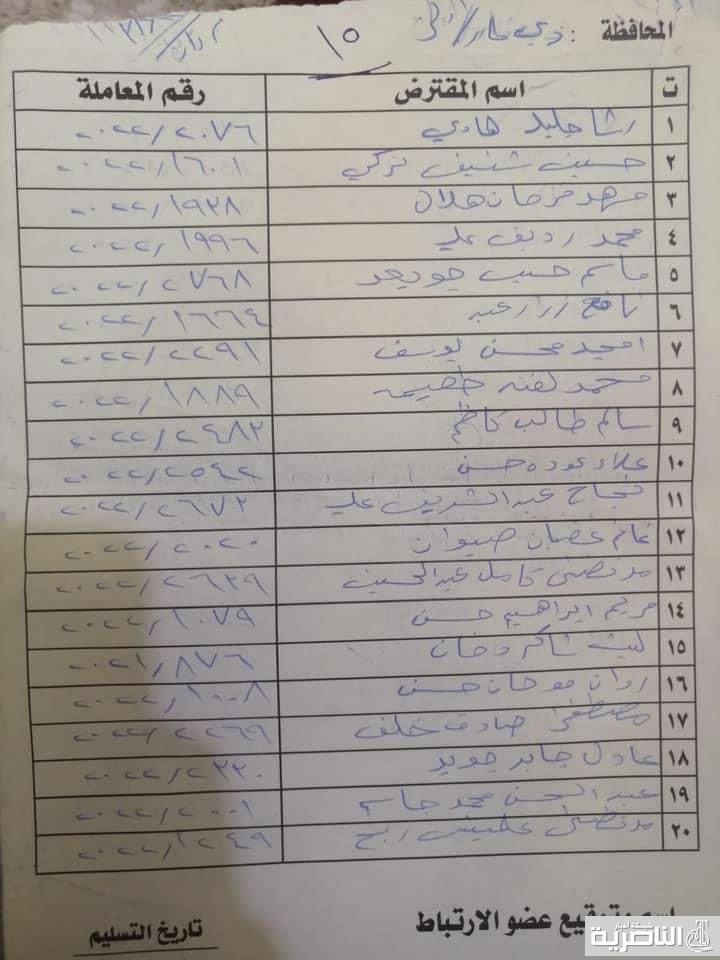 المحافظة : ذي قار /
١٥
ت اسم المقترض رقم المعاملة
١ رشا جليل هادي ٢٠٢٢/٢٠٧٦
٢ حسين شنيف تركي ٢٠٢٢/١٦٠١
٣ مهد فرحان هلال ٢٠٢٢/١٩٣٨
٤ محمد رديف علي ٢٠٢٢/١٩٩٦
٥ حسب جويعد ٢٠٢٢/٢٧٦٨
٦ نافع نزار عبد ٢٠٢٢/١٦٦٤
٧ امجد محسن يوسف ٢٠٢٢/٢٢٩١
٨ محمد لفته طعيمه ٢٠٢٢/١٨٨٩
٩ سالم طالب كاظم ٢٠٢٢/٢٤٨٢
١٠ علاء عوده حسن ٢٠٢٢/٢٥٤٢
١١ نجاح عبد الشريف علي ٢٠٢٢/٢٦٧٢
١٢ غانم غضبان صيوان ٢٠٢٢/٢٠٢٠
١٣ مرتضى كامل عبد الحسين ٢٠٢٢/٢٦٣٩
١٤ مريم ابراهيم حسن ٢٠٢٢/١٠٧٩
١٥ ليث شاكر ٢٠٢١/٨٧٦
١٦ روان موحان حسن ٢٠٢٢/١٠٠٨
١٧ مصطفى صادق خلف ٢٠٢٢/٢٢٦٩
١٨ عادل جابر جويد ٢٠٢٢/٢٣٣٠
١٩ عبد الحسن محمد جاسم ٢٠٢٢/٢٠٠١
٢٠ مرتضى ربح ٢٠٢٢/١٢٤٩
اسم وتوقيع عضو الارتباط
تاريخ التسليم
شبكة أخبار الناصرية